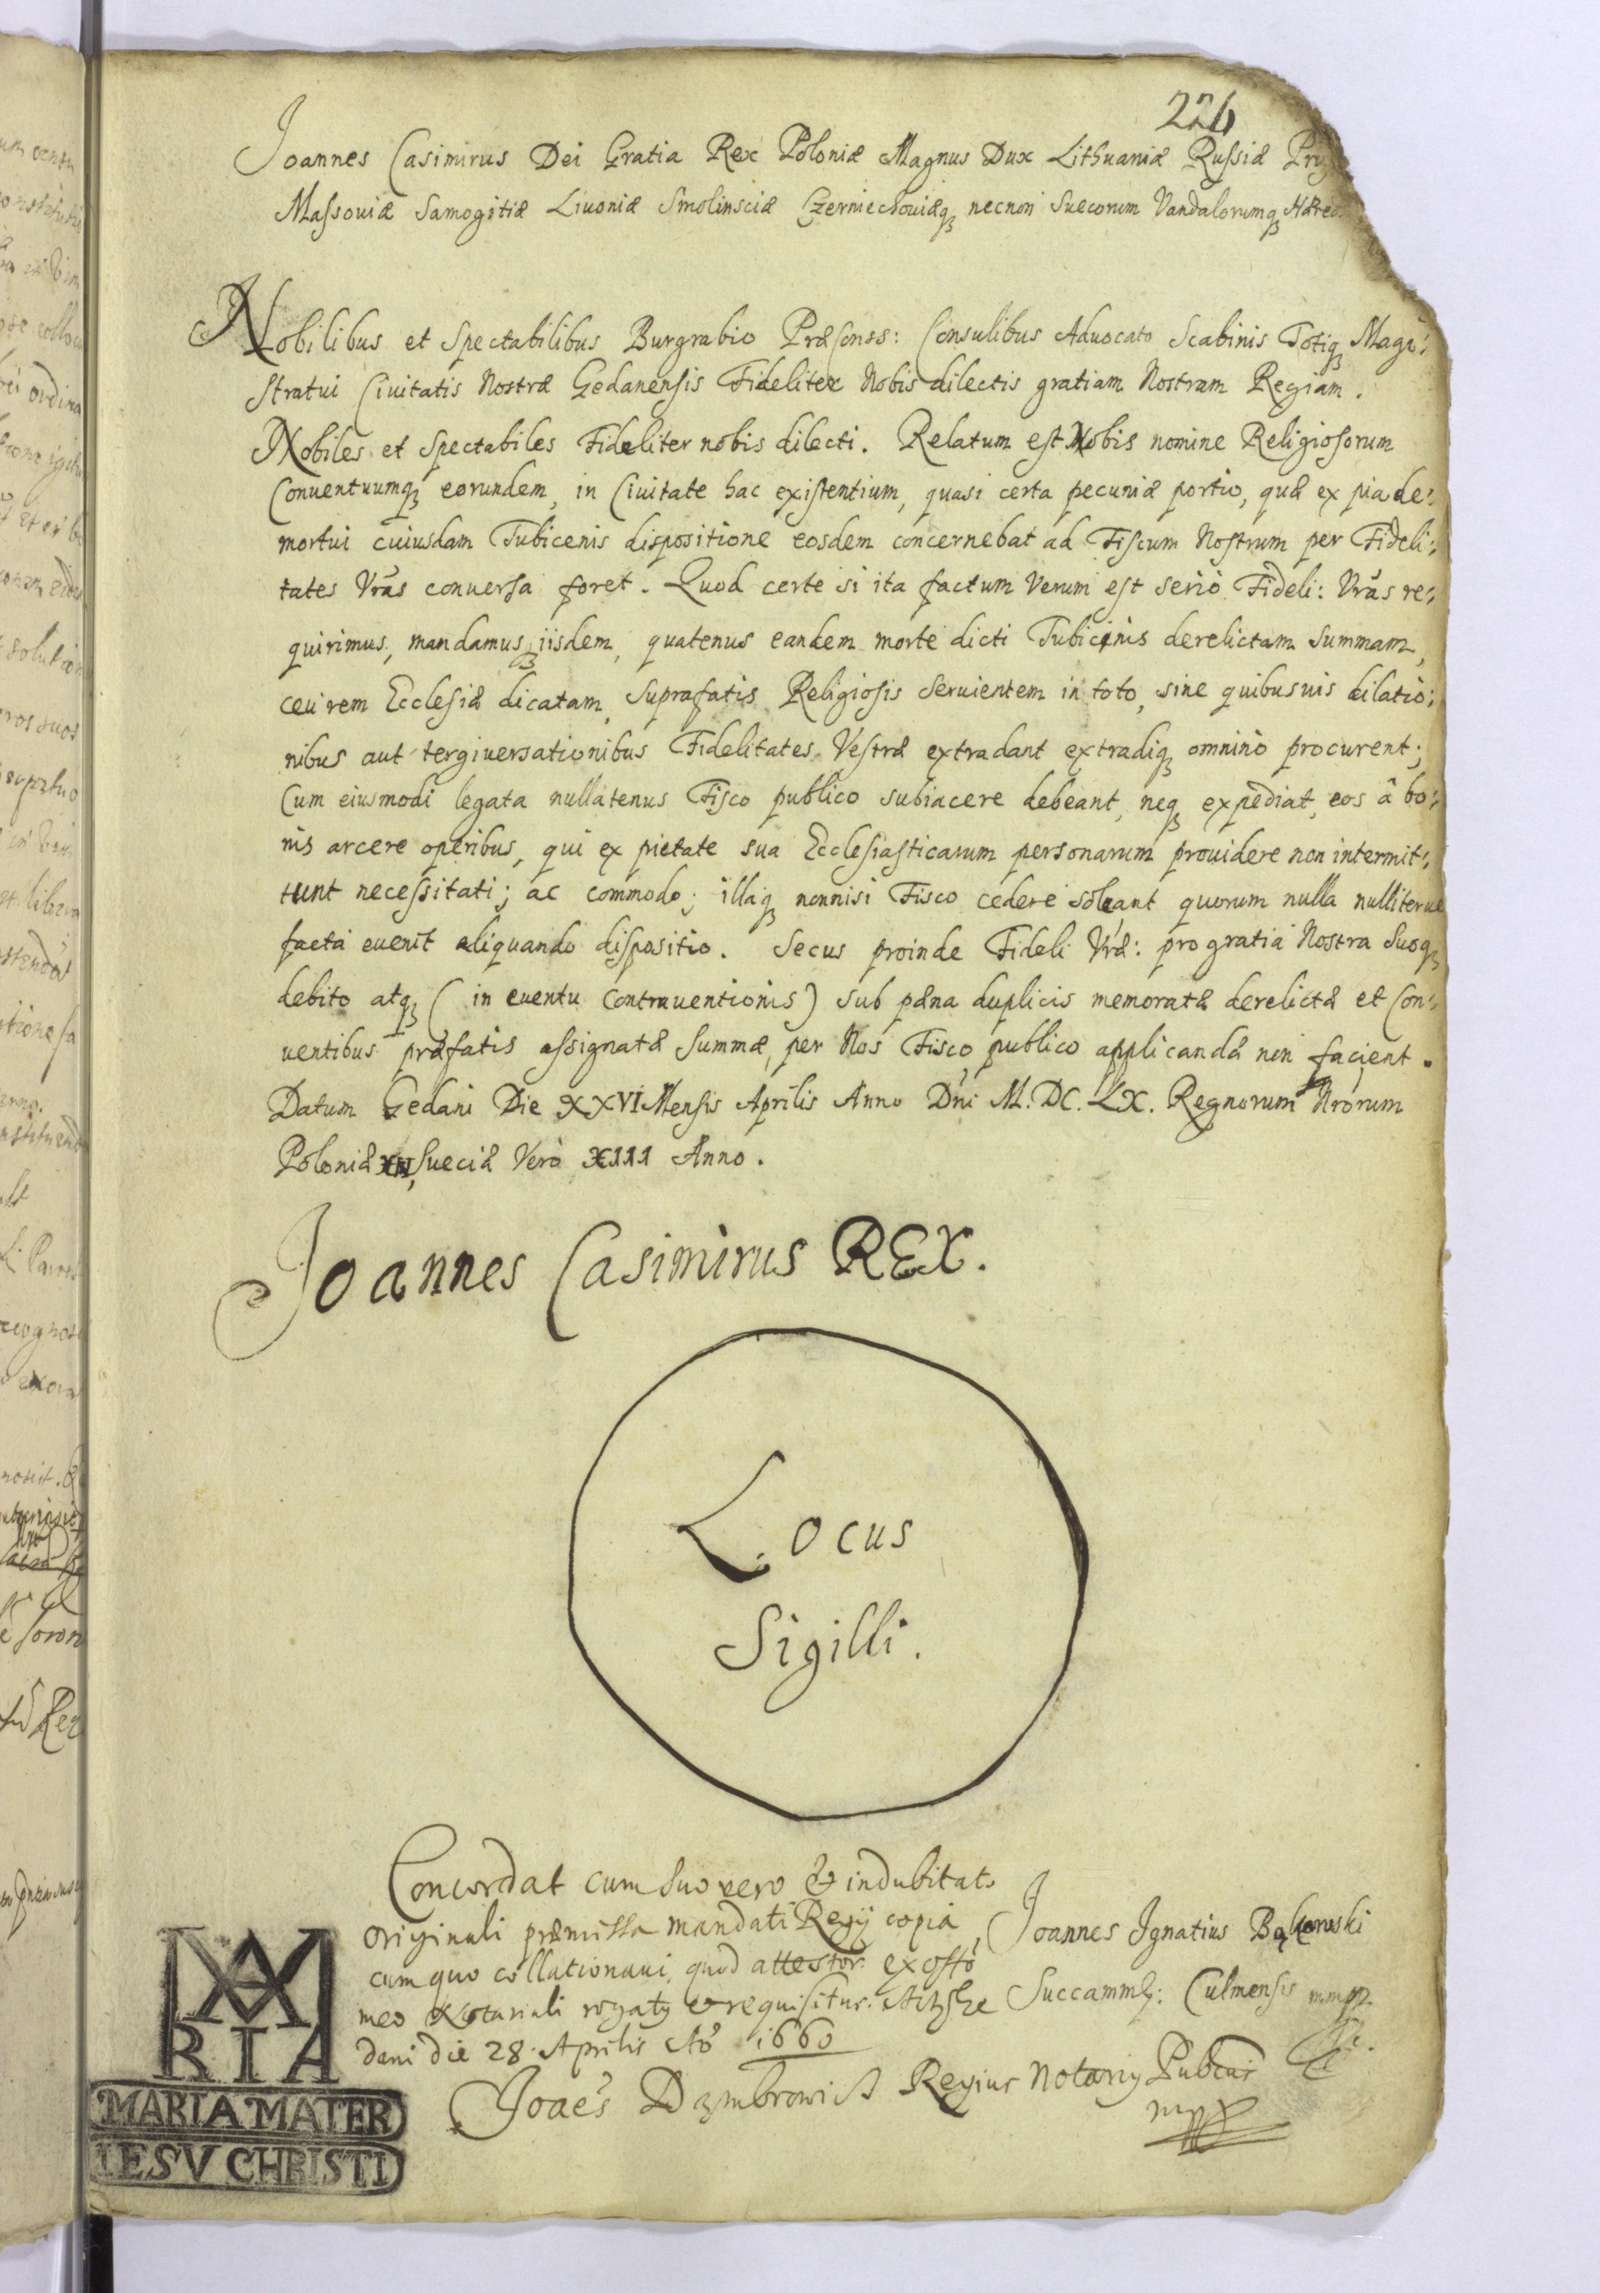 226
Joannes Casimirus Dei Gratia Rex Poloniæ Magnus Dux Lithuaniæ Russiæ
Massoviæ Samogitiæ Livoniæ Smolinsciæ Czerniechoviæq₃ necnon Suecorum Vandalorumq₃
Nobilibus et Spectabilibus Burgrabio PræConss: Consulibus Advocato Scabinis Totiq₃ Magi:
stratui Civitatis Nostræ Gedanensis Fideliter Nobis dilectis gratiam Nostram Regiam.
Nobiles et Spectabiles Fideliter nobis dilecti. Relatum est Nobis nomine Religiosorum
Conventuumq₃ eorundem, in Civitate hac existentium, quasi certa pecuniæ portio, quæ ex pia de:
mortui cuiusdam Tubicenis dispositione eosdem concernebat ad Fiscum Nostrum per Fideli:
tates Vrãs conversa foret. Quod certe si ita factum verum est seriò Fideli: Vrãs re:
quirimus, mandamusq₃ iisdem, quatenus eandem morte dicti Tubicinis derelictam summam,
ceu rem Ecclesiæ dicatam, suprafatis Religiosis servientem in toto, sine quibusvis dilatio:
nibus aut tergiversationibus Fidelitates Vestræ extradant extradiq₃ omninò procurent;
Cum eiusmodi legata nullatenus Fisco publico subiacere debeant, neq₃ expediat, eos â bo:
nis arcere operibus, qui ex pietate sua Ecclesiasticarum personarum providere non intermit:
tunt necessitati; ac commodo; illaq₃ nonnisi Fisco cedere soleant quorum nulla nulliterve
facta evenit aliquando dispositio. Secus proinde Fideli Vræ: pro gratia Nostra Suoq₃
debito atq₃ (in eventu Contraventionis) sub pæna duplicis memoratæ derelictæ et Con:
ventibus præfatis assignatæ Summæ, per Nos Fisco publico applicandæ non facient.
Datum Gedani Die XXVI Mensis Aprilis Anno Dñi M.DC.LX. Regnorum Nrõrum
Poloniæ XII, Sueciæ Verò XIII Anno.
Joannes Casimirus REX.
Locus
Sigilli.
Concordat cum suo vero & indubitato
originali præmissa mandati Regij copia,
cum quo collationavi, quod attestor ex offõ
meo Notariali rogatq et requisitus.
dani die 28 Aprilis Aõ 1660
Joannes Ignatius Bąkowski
Succamm: Culmensis mmpp
Joaẽs Dąmbrowicz Regius Notariq Publcus
mpp
MARIA
MARIA MATER
IESV CHRISTI